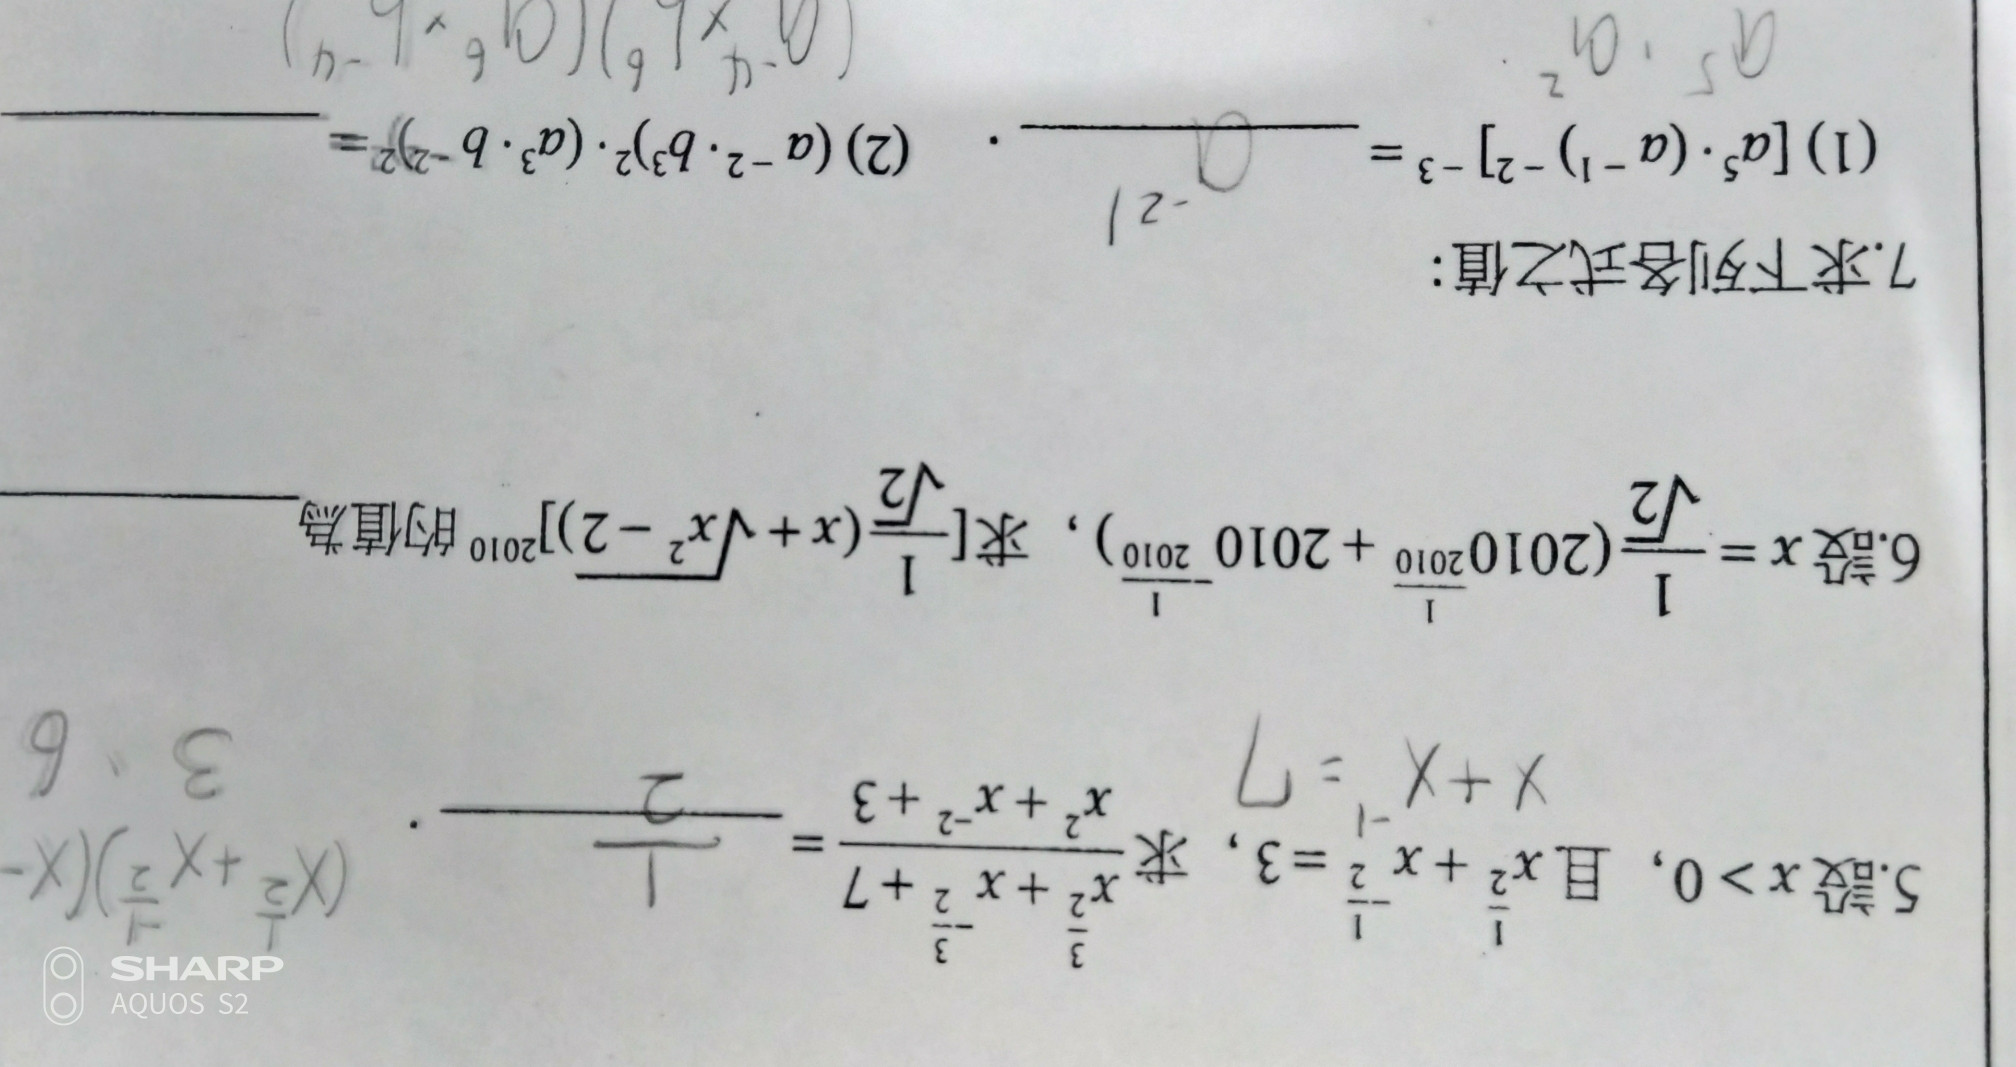 5.設 x > 0, 且 x^{\frac{1}{2}} + x^{-\frac{1}{2}} = 3, 求 \frac{x^{\frac{3}{2}} + x^{-\frac{3}{2}} + 7}{x^2 + x^{-2} + 3} = \frac{1}{2} .
(x^{\frac{1}{2}} + x^{\frac{-1}{2}})(x-
x + x^{-1} = 7
3 · 6
6.設 x = \frac{1}{\sqrt{2}}(2010^{\frac{1}{2010}} + 2010^{-\frac{1}{2010}}), 求 [\frac{1}{\sqrt{2}}(x + \sqrt{x^2 - 2})]^{2010} 的值為
7.求下列各式之值:
(1) [a^5 · (a^{-1})^{-2}]^{-3} = a^{-21} . (2) (a^{-2} · b^3)^2 · (a^3 · b^{-2})^2 =
a^5 · a^2
(a^{-4} × b^6)(a^6 × b^{-4})
SHARP
AQUOS S2